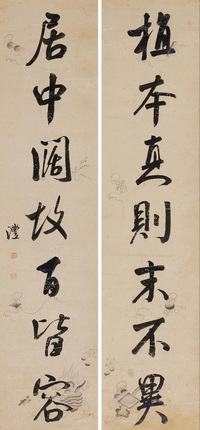 植本真則末不異
居中闊故百皆容
澧